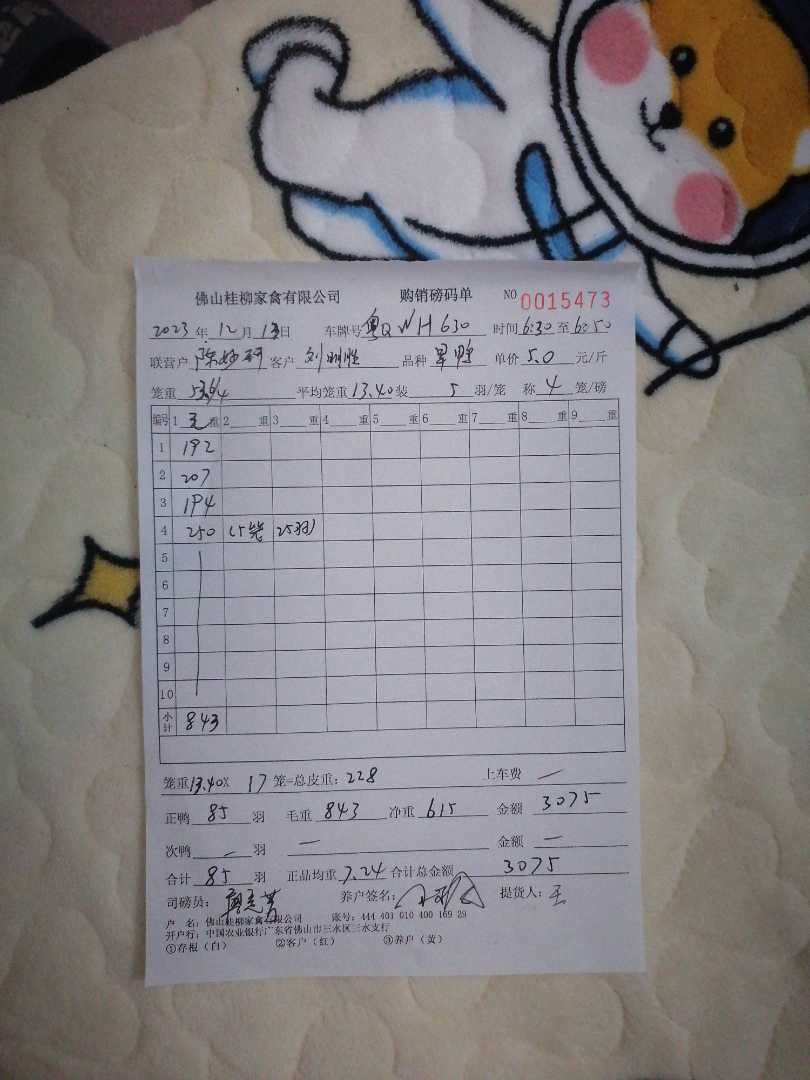 佛山桂柳家禽有限公司 购销磅码单 NO 0015473
2023年12月13日 车牌号 粤QWH630 时间 6:30 至 6:50
联营户 陈 客户 刘明胜 品种 旱鸭 单价 5.0 元/斤
笼重 平均笼重 13.40 装 5 羽/笼 称 4 笼/磅
编号 1 毛 重 2 重 3 重 4 重 5 重 6 重 7 重 8 重 9 重
1 192
2 207
3 194
4 250 (5笼 25羽)
5
6
7
8
9
10
小计 843
笼重 13.40 X 17 笼=总皮重: 228 上车费 —
正鸭 85 羽 毛重 843 净重 615 金额 3075
次鸭 — 羽 — 金额 —
合计 85 羽 正品均重 7.24 合计总金额 3075
司磅员: 养户签名: 提货人: 王
户 名: 佛山桂柳家禽有限公司 账号: 444 401 010 400 169 29
开户行: 中国农业银行广东省佛山市三水区三水支行
①存根(白) ②客户(红) ③养户(黄)